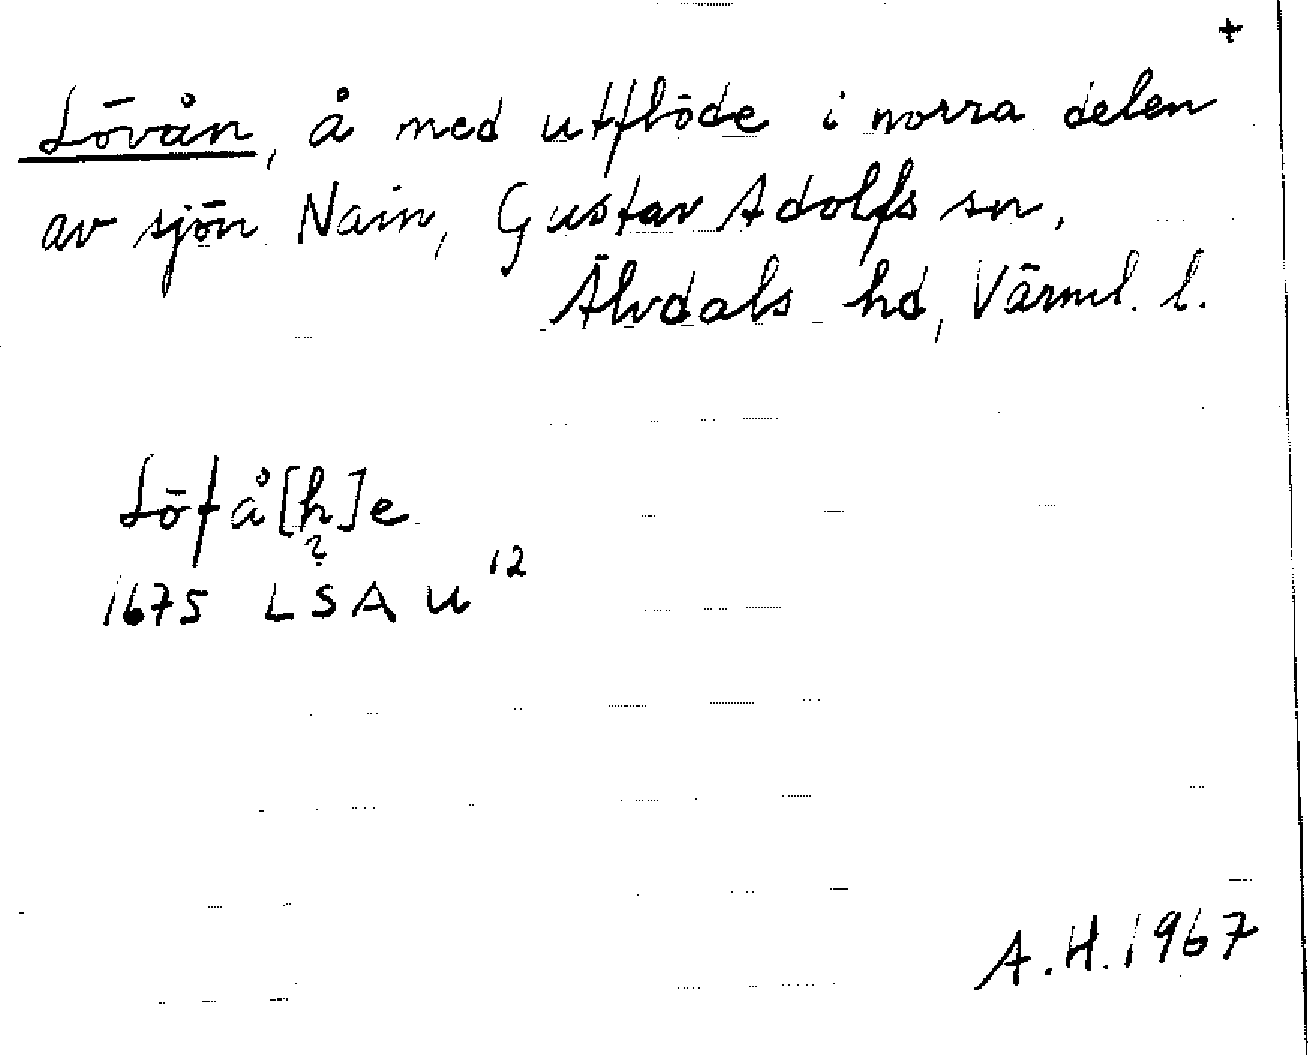 +
Lövån, å med utflöde i norra delen
av sjön Nain, Gustav Adolfs sn,
Älvdals hd, Värml. l.
Löfå[h]e
?
1675 LSA U¹²
A.H. 1967